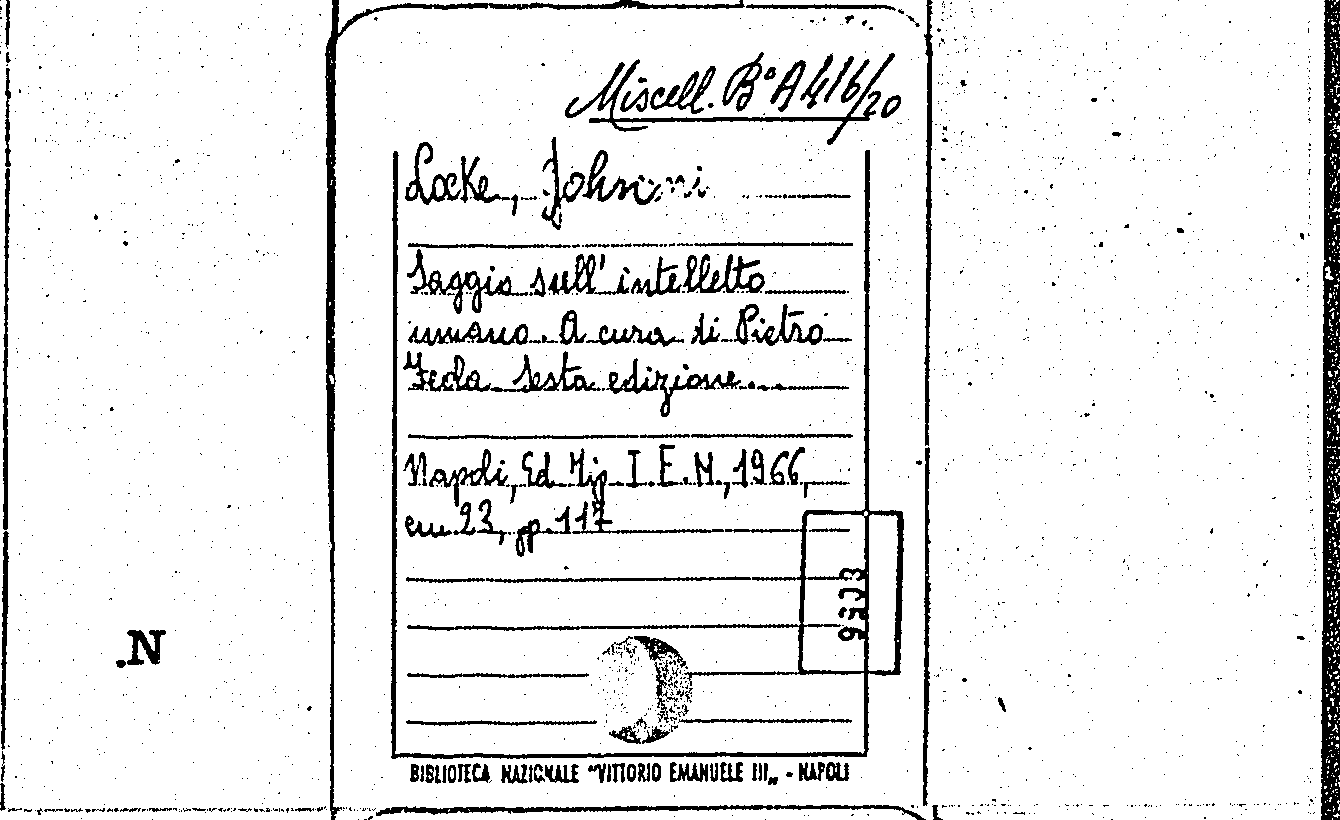 Miscell. B° A 416/20
Locke, John
Saggio sull' intelletto
umano. A cura di Pietro
Feola. Sesta edizione...
Napoli, Ed. Tip. I.E.M., 1966,
cm. 23, pp. 117
BIBLIOTECA NAZIONALE "VITTORIO EMANUELE III„ - NAPOLI
.N